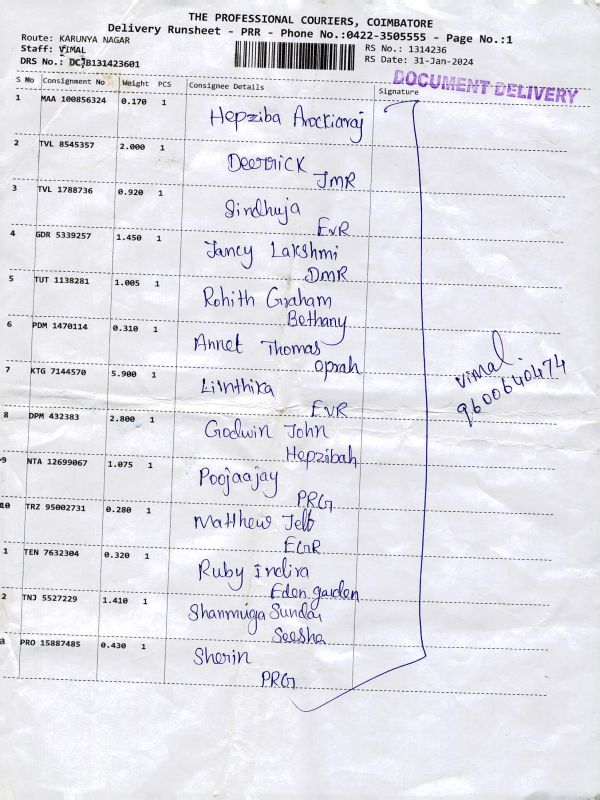 THE PROFESSIONAL COURIERS, COIMBATORE
Delivery Runsheet - PRR - Phone No.:0422-3505555 - Page No.:1
Route: KARUNYA NAGAR
Staff: VIMAL
DRS No.: DCJB131423601
RS No.: 1314236
RS Date: 31-Jan-2024
DOCUMENT DELIVERY
S No Consignment No Weight PCS Consignee Details Signature
1 MAA 100856324 0.170 1 Hepziba Arockiaraj
2 TVL 8545357 2.000 1 Deerrick
JMR
3 TVL 1788736 0.920 1 Sindhuja
EVR
4 GDR 5339257 1.450 1 Jancy Lakshmi
DMR
5 TUT 1138281 1.005 1 Rohith Graham
Bethany
6 PDM 1470114 0.310 1 Annet Thomas
Oprah
7 KTG 7144570 5.900 1
EVR
8 DPM 432383 2.800 1 Godwin John
Hepzibah
9 NTA 12699067 1.075 1 Poojaajay
PRG
10 TRZ 95002731 0.280 1 Matthew
EGR
1 TEN 7632304 0.320 1 Ruby Indira
Eden garden
2 TNJ 5527229 1.410 1 Shanmuga Sundar
Seesha
3 PRO 15887485 0.430 1 Sherin
PRG
Vimal.
9600640474